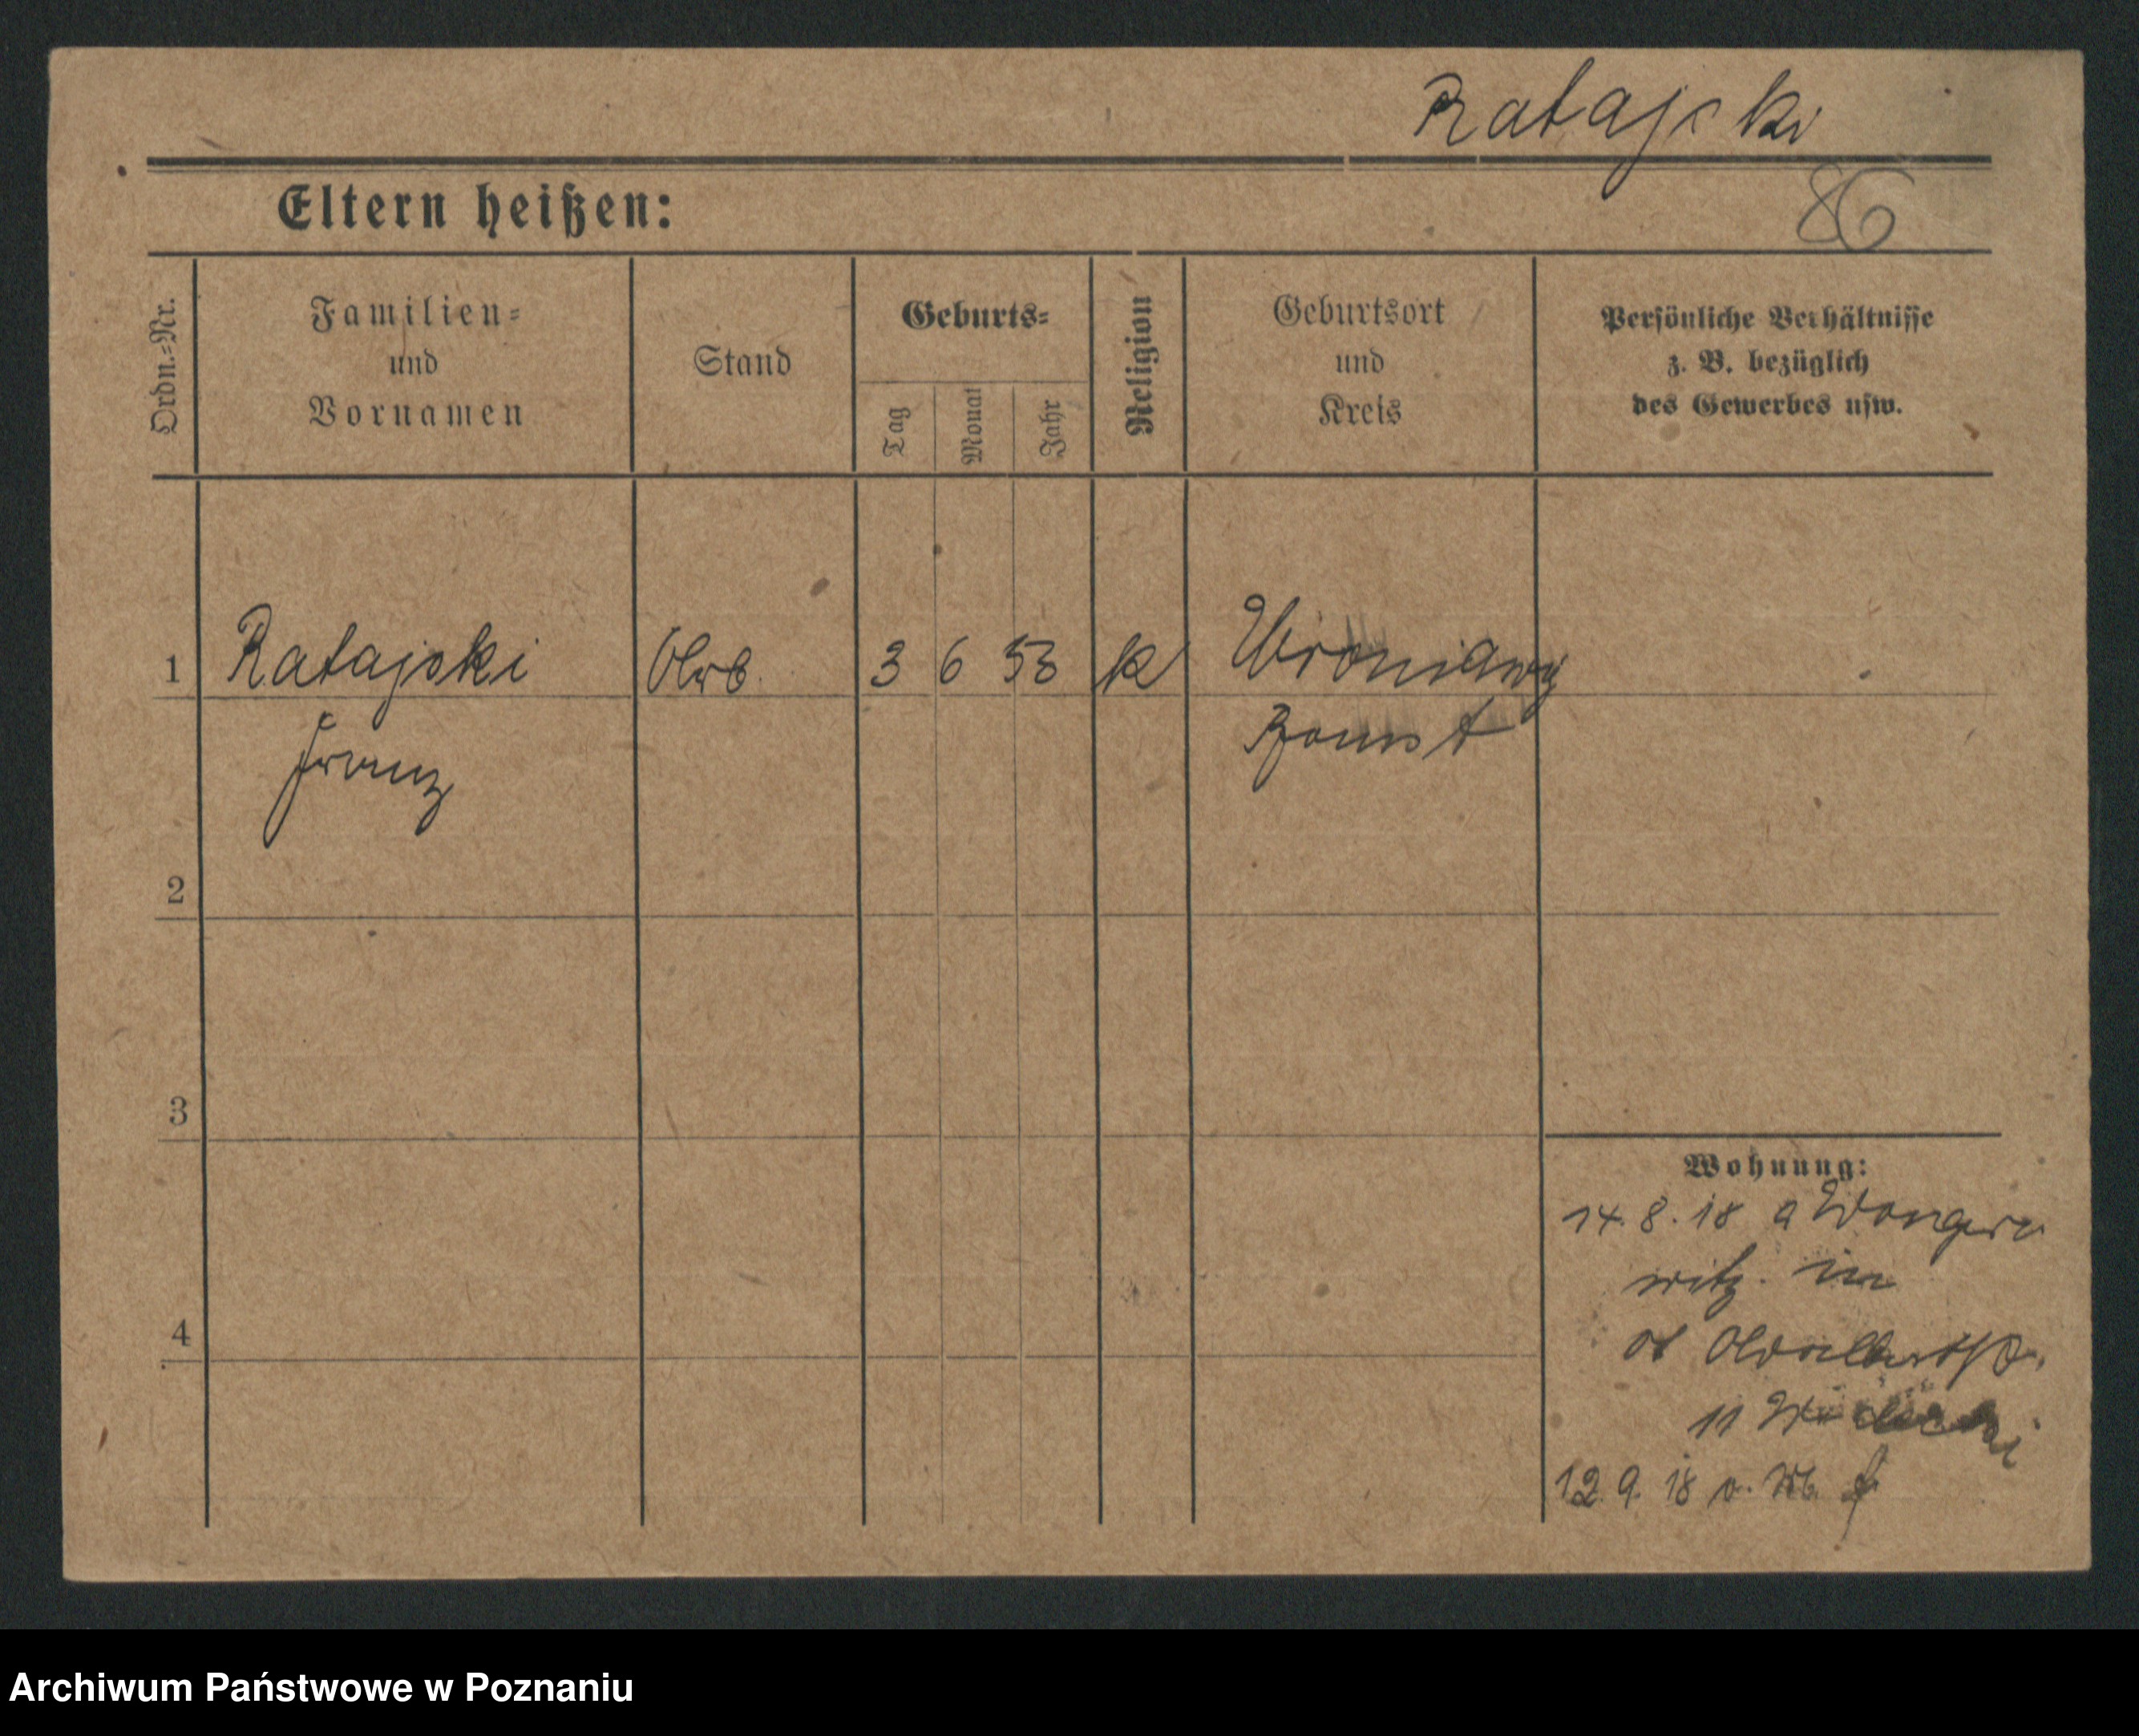 Ratajski
86
Eltern heißen:
Ordn.=Nr.
Familien=
und
Vornamen
Stand
Geburts=
Tag
Monat
Jahr
Religion
Geburtsort
und
Kreis
Persönliche Verhältnisse
z. B. bezüglich
des Gewerbes usw.
1 Ratajski Arb. 3 6 53 K Wroniawy
Franz Bomst
2
3
Wohnung:
14. 8. 18 a
witz. in
4
11
12. 9. 18 v.
Archiwum Państwowe w Poznaniu